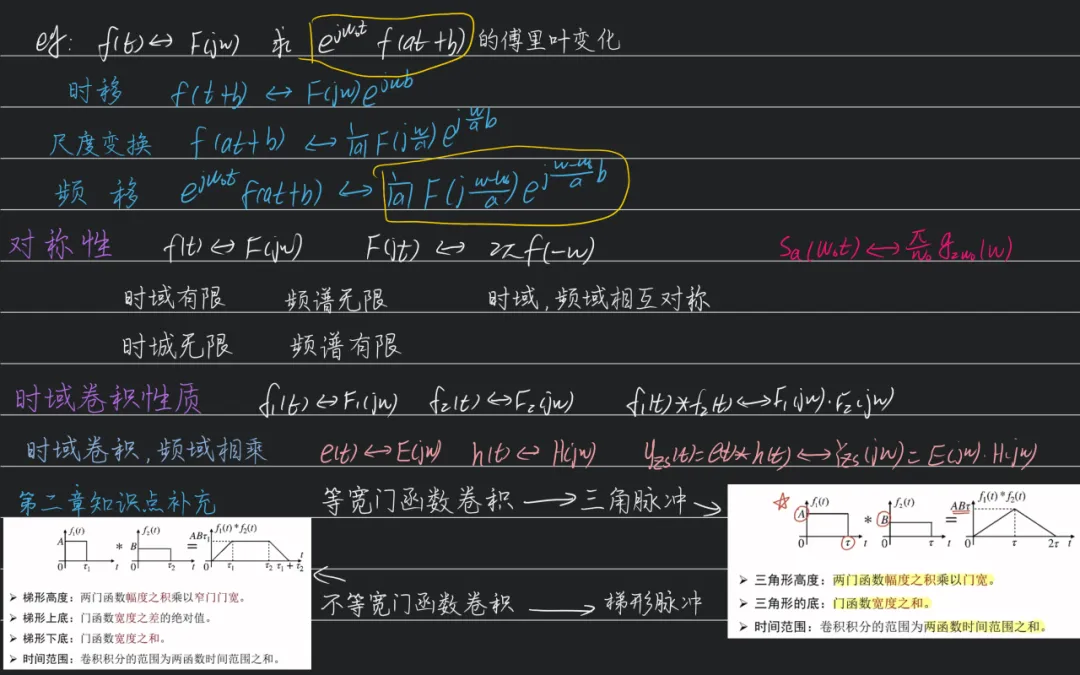 eg: f(t)↔F(jw) 求 e^{jw₀t} f(at+b) 的傅里叶变化
时移 f(t+b) ↔ F(jw)e^{jwb}
尺度变换 f(at+b) ↔ 1/|a| F(j w/a) e^{j w/a b}
频移 e^{jw₀t} f(at+b) ↔ 1/|a| F(j (w-w₀)/a) e^{j (w-w₀)/a b}
对称性 f(t)↔F(jw) F(jt) ↔ 2πf(-w) Sa(w₀t)↔π/w₀ g_{2w₀}(w)
时域有限 频谱无限 时域,频域相互对称
时城无限 频谱有限
时域卷积性质 f₁(t)↔F₁(jw) f₂(t)↔F₂(jw) f₁(t)*f₂(t)↔F₁(jw)·F₂(jw)
时域卷积,频域相乘 e(t)↔E(jw) h(t)↔H(jw) yzs(t)=e(t)*h(t)↔Yzs(jw)=E(jw)·H(jw)
第二章知识点补充 等宽门函数卷积 → 三角脉冲 →
f₁(t) A 0 τ₁ t * f₂(t) B 0 τ₂ t = f₁(t)*f₂(t) ABτ₁ 0 τ₁ τ₂ τ₁+τ₂ t
➤ 梯形高度：两门函数幅度之积乘以窄门门宽。
➤ 梯形上底：门函数宽度之差的绝对值。
➤ 梯形下底：门函数宽度之和。
➤ 时间范围：卷积积分的范围为两函数时间范围之和。
← 不等宽门函数卷积 → 梯形脉冲
☆ f₁(t) A 0 τ t * f₂(t) B 0 τ t = f₁(t)*f₂(t) ABτ 0 τ 2τ t
➤ 三角形高度：两门函数幅度之积乘以门宽。
➤ 三角形的底：门函数宽度之和。
➤ 时间范围：卷积积分的范围为两函数时间范围之和。